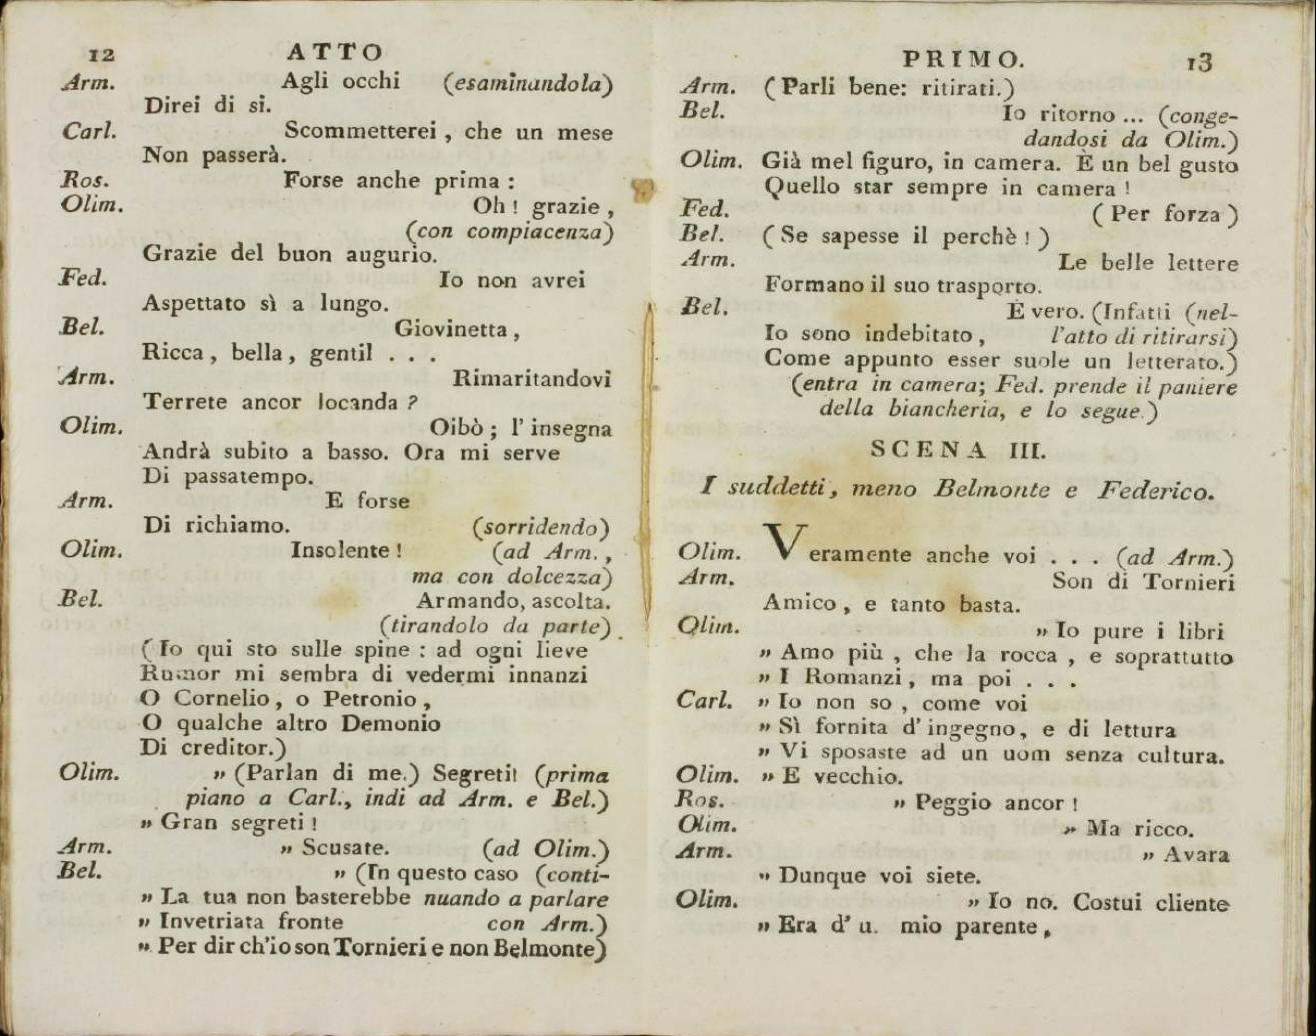 12 ATTO
Arm. Agli occhi (esaminandola)
Direi di sì.
Carl. Scommetterei, che un mese
Non passerà.
Ros. Forse anche prima:
Olim. Oh! grazie,
(con compiacenza)
Grazie del buon augurio.
Fed. Io non avrei
Aspettato sì a lungo.
Bel. Giovinetta,
Ricca, bella, gentil . . .
Arm. Rimaritandovi
Terrete ancor locanda?
Olim. Oibò; l'insegna
Andrà subito a basso. Ora mi serve
Di passatempo.
Arm. E forse
Di richiamo. (sorridendo)
Olim. Insolente! (ad Arm.,
ma con dolcezza)
Bel. Armando, ascolta.
(tirandolo da parte)
(Io qui sto sulle spine: ad ogni lieve
Rumor mi sembra di vedermi innanzi
O Cornelio, o Petronio,
O qualche altro Demonio
Di creditor.)
Olim. „ (Parlan di me.) Segreti! (prima
piano a Carl., indi ad Arm. e Bel.)
„ Gran segreti!
Arm. „ Scusate. (ad Olim.)
Bel. „ (In questo caso (conti-
„ La tua non basterebbe nuando a parlare
„ Invetriata fronte con Arm.)
„ Per dir ch'io son Tornieri e non Belmonte)
PRIMO. 13
Arm. (Parli bene: ritirati.)
Bel. Io ritorno ... (conge-
dandosi da Olim.)
Olim. Già mel figuro, in camera. È un bel gusto
Quello star sempre in camera!
Fed. (Per forza)
Bel. (Se sapesse il perchè!)
Arm. Le belle lettere
Formano il suo trasporto.
Bel. È vero. (Infatti (nel-
Io sono indebitato, l'atto di ritirarsi)
Come appunto esser suole un letterato.)
(entra in camera; Fed. prende il paniere
della biancheria, e lo segue.)
SCENA III.
I suddetti, meno Belmonte e Federico.
Olim. Veramente anche voi . . . (ad Arm.)
Arm. Son di Tornieri
Amico, e tanto basta.
Olim. „ Io pure i libri
„ Amo più, che la rocca, e soprattutto
„ I Romanzi, ma poi . . .
Carl. „ Io non so, come voi
„ Sì fornita d'ingegno, e di lettura
„ Vi sposaste ad un uom senza cultura.
Olim. „ E vecchio.
Ros. „ Peggio ancor!
Olim. „ Ma ricco.
Arm. „ Avara
„ Dunque voi siete.
Olim. „ Io no. Costui cliente
„ Era d'u. mio parente,